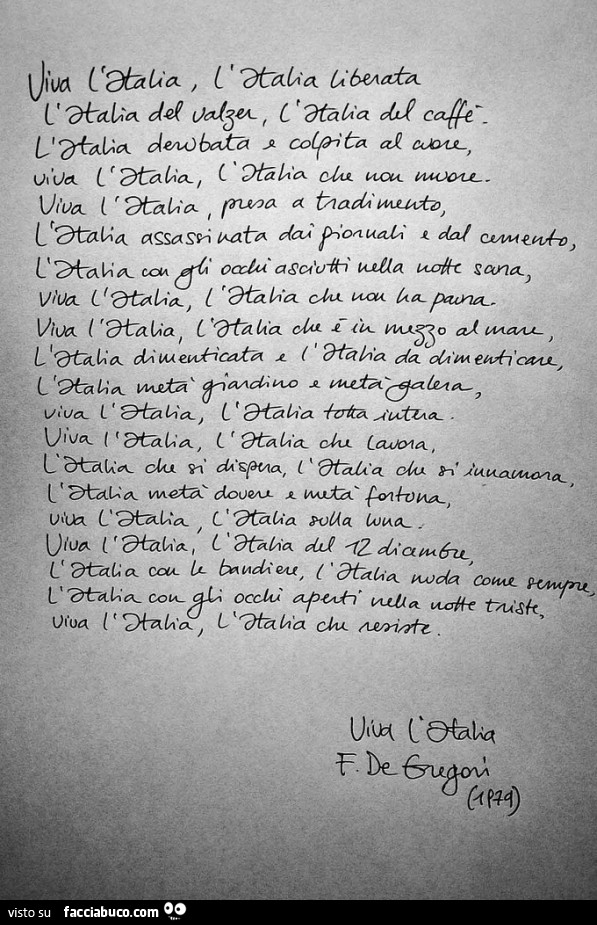 Viva l'Italia, l'Italia liberata
l'Italia del valzer, l'Italia del caffè.
L'Italia derubata e colpita al cuore,
viva l'Italia, l'Italia che non muore.
Viva l'Italia, presa a tradimento,
l'Italia assassinata dai giornali e dal cemento,
l'Italia con gli occhi asciutti nella notte scura,
viva l'Italia, l'Italia che non ha paura.
Viva l'Italia, l'Italia che è in mezzo al mare,
L'Italia dimenticata e l'Italia da dimenticare,
l'Italia metà giardino e metà galera,
viva l'Italia, l'Italia tutta intera.
Viva l'Italia, l'Italia che lavora,
L'Italia che si dispera, l'Italia che si innamora,
l'Italia metà dovere e metà fortuna,
viva l'Italia, l'Italia sulla luna.
Viva l'Italia, l'Italia del 12 dicembre,
l'Italia con le bandiere, l'Italia nuda come sempre,
l'Italia con gli occhi aperti nella notte triste,
viva l'Italia, l'Italia che resiste.
Viva l'Italia
F. De Gregori
(1979)
visto su facciabuco.com